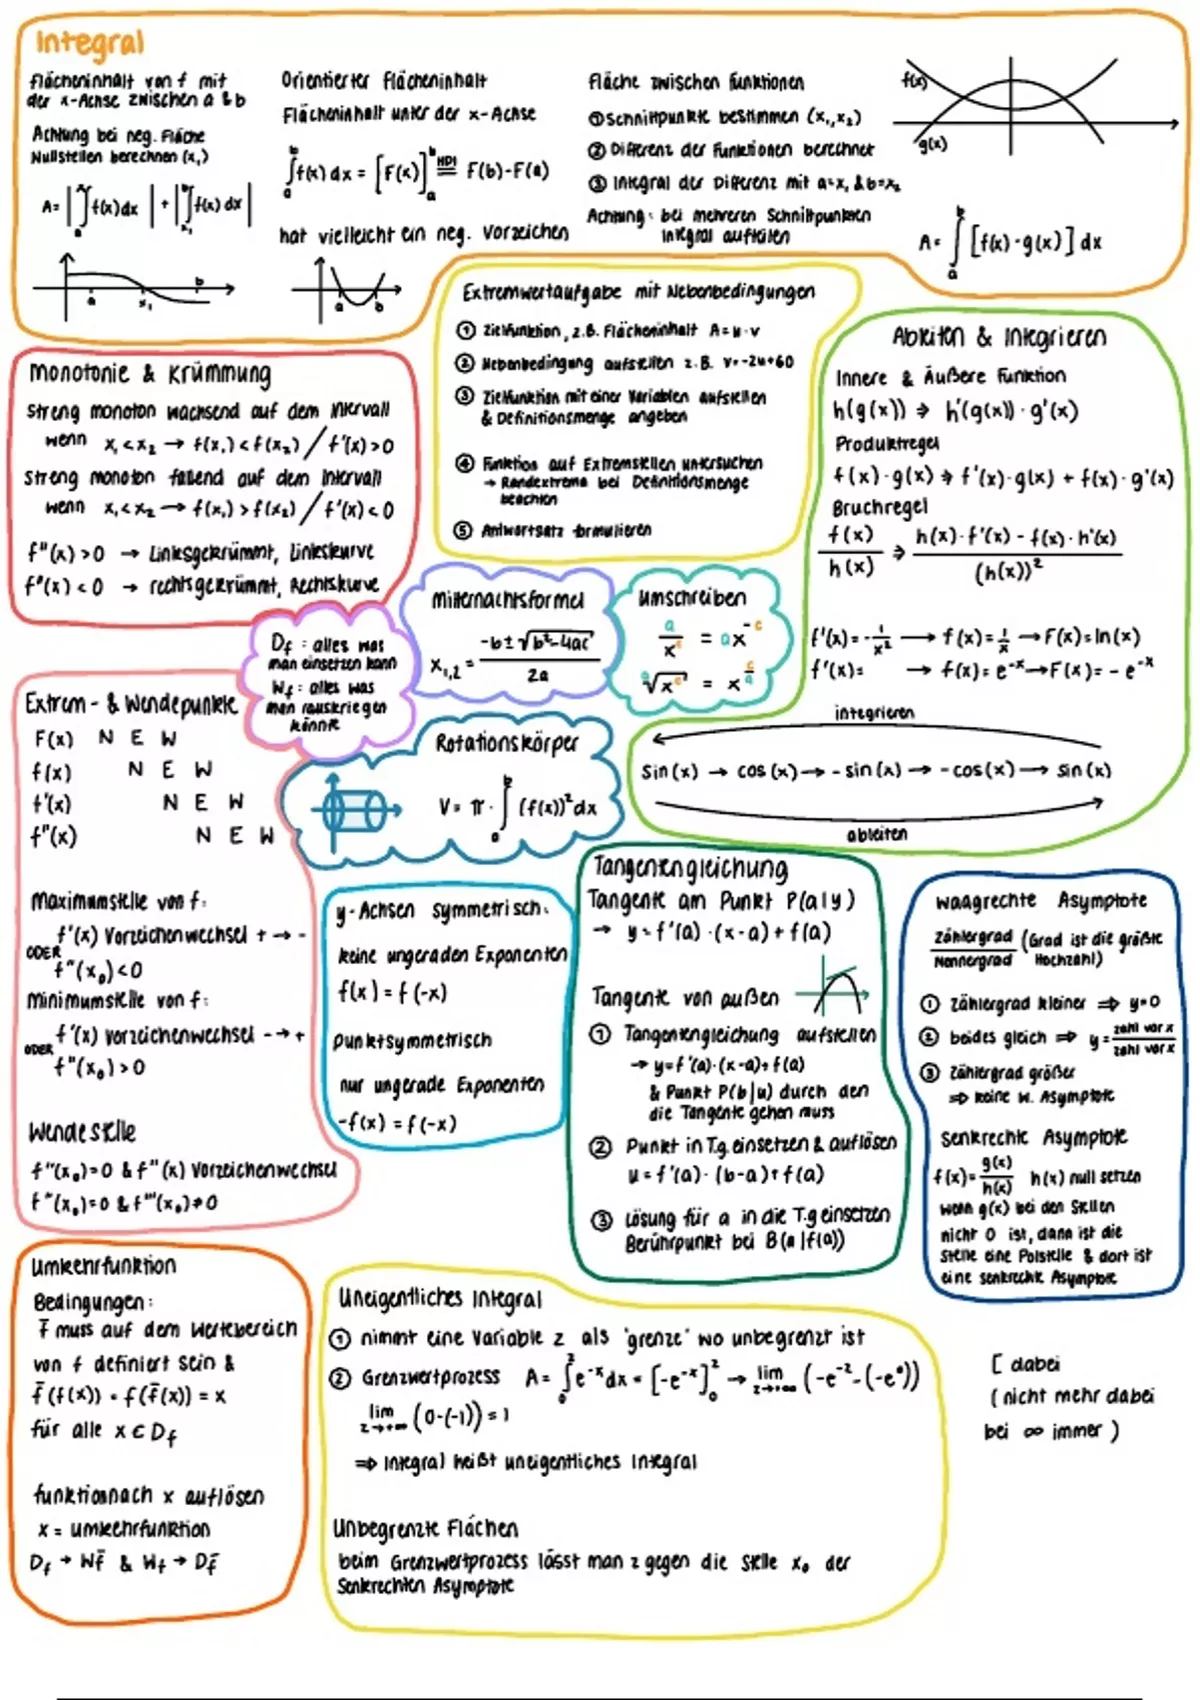 Integral
Flächeninhalt von f mit
der x-Achse zwischen a & b
Achtung bei neg. Fläche
Nullstellen berechnen (x₁)
A = |∫ₐˣ¹ f(x) dx| + |∫ₓ₁ᵇ f(x) dx|
a x₁ b
Orientierter Flächeninhalt
Flächeninhalt unter der x-Achse
∫ₐᵇ f(x) dx = [F(x)]ₐᵇ HDI = F(b)-F(a)
hat vielleicht ein neg. Vorzeichen
a b
Fläche zwischen Funktionen
① Schnittpunkte bestimmen (x₁,x₂)
② Differenz der Funktionen berechnet
③ Integral der Differenz mit a=x₁ & b=x₂
Achtung: bei mehreren Schnittpunkten
Integral aufteilen
f(x)
g(x)
A = ∫ₐᵇ [f(x)-g(x)] dx
Extremwertaufgabe mit Nebenbedingungen
① Zielfunktion, z.B. Flächeninhalt A=u·v
② Nebenbedingung aufstellen z.B. v=-2u+60
③ Zielfunktion mit einer Variablen aufstellen
& Definitionsmenge angeben
④ Funktion auf Extremstellen untersuchen
→ Randextrema bei Definitionsmenge
beachten
⑤ Antwortsatz formulieren
Monotonie & Krümmung
Streng monoton wachsend auf dem Intervall
wenn x₁<x₂ → f(x₁)<f(x₂) / f'(x)>0
Streng monoton fallend auf dem Intervall
wenn x₁<x₂ → f(x₁)>f(x₂) / f'(x)<0
f"(x)>0 → Linksgekrümmt, Linkskurve
f"(x)<0 → rechtsgekrümmt, Rechtskurve
Ableiten & Integrieren
Innere & Äußere Funktion
h(g(x)) ⇒ h'(g(x))·g'(x)
Produktregel
f(x)·g(x) ⇒ f'(x)·g(x) + f(x)·g'(x)
Bruchregel
f(x)/h(x) ⇒ (h(x)·f'(x) - f(x)·h'(x))/(h(x))²
f'(x)=-1/x² → f(x)=1/x → F(x)=ln(x)
f'(x)= → f(x)=e⁻ˣ → F(x)=-e⁻ˣ
integrieren
sin(x) → cos(x) → -sin(x) → -cos(x) → sin(x)
ableiten
Df : alles was
man einsetzen kann
Wf : alles was
man rauskriegen
könnte
Mitternachtsformel
x₁,₂ = (-b±√(b²-4ac))/2a
Umschreiben
a/xᶜ = ax⁻ᶜ
ᵃ√xᶜ = x^(c/a)
Rotationskörper
V = π · ∫ₐᵇ (f(x))² dx
Extrem- & Wendepunkte
F(x) N E W
f(x) N E W
f'(x) N E W
f"(x) N E W
Maximumstelle von f:
f'(x) Vorzeichenwechsel + → -
ODER
f"(x₀)<0
Minimumstelle von f:
f'(x) Vorzeichenwechsel - → +
ODER
f"(x₀)>0
Wendestelle
f"(x₀)=0 & f"(x) Vorzeichenwechsel
f"(x₀)=0 & f'''(x₀)≠0
y-Achsen symmetrisch:
keine ungeraden Exponenten
f(x) = f(-x)
punktsymmetrisch
nur ungerade Exponenten
-f(x) = f(-x)
Tangentengleichung
Tangente am Punkt P(a|y)
→ y=f'(a)·(x-a)+f(a)
Tangente von außen
① Tangentengleichung aufstellen
→ y=f'(a)·(x-a)+f(a)
& Punkt P(b|u) durch den
die Tangente gehen muss
② Punkt in T.g. einsetzen & auflösen
u=f'(a)·(b-a)+f(a)
③ Lösung für a in die T.g einsetzen
Berührpunkt bei B(a|f(a))
waagrechte Asymptote
Zählergrad/Nennergrad (Grad ist die größte
Hochzahl)
① Zählergrad kleiner ⇒ y=0
② beides gleich ⇒ y = zahl vor x/zahl vor x
③ Zählergrad größer
⇒ keine w. Asymptote
Senkrechte Asymptote
f(x)=g(x)/h(x) h(x) null setzen
wenn g(x) bei den Stellen
nicht 0 ist, dann ist die
Stelle eine Polstelle & dort ist
eine senkrechte Asymptote
Umkehrfunktion
Bedingungen:
f̄ muss auf dem Wertebereich
von f definiert sein &
f̄(f(x)) = f(f̄(x)) = x
für alle x ∈ Df
funktion nach x auflösen
x = umkehrfunktion
Df → Wf̄ & Wf → Df̄
Uneigentliches Integral
① nimmt eine Variable z als 'grenze' wo unbegrenzt ist
② Grenzwertprozess A = ∫₀ᶻ e⁻ˣ dx = [-e⁻ˣ]₀ᶻ → lim z→+∞ (-e⁻ᶻ-(-e⁰))
lim z→+∞ (0-(-1)) = 1
⇒ Integral heißt uneigentliches Integral
Unbegrenzte Flächen
beim Grenzwertprozess lässt man z gegen die Stelle x₀ der
Senkrechten Asymptote
[ dabei
( nicht mehr dabei
bei ∞ immer )